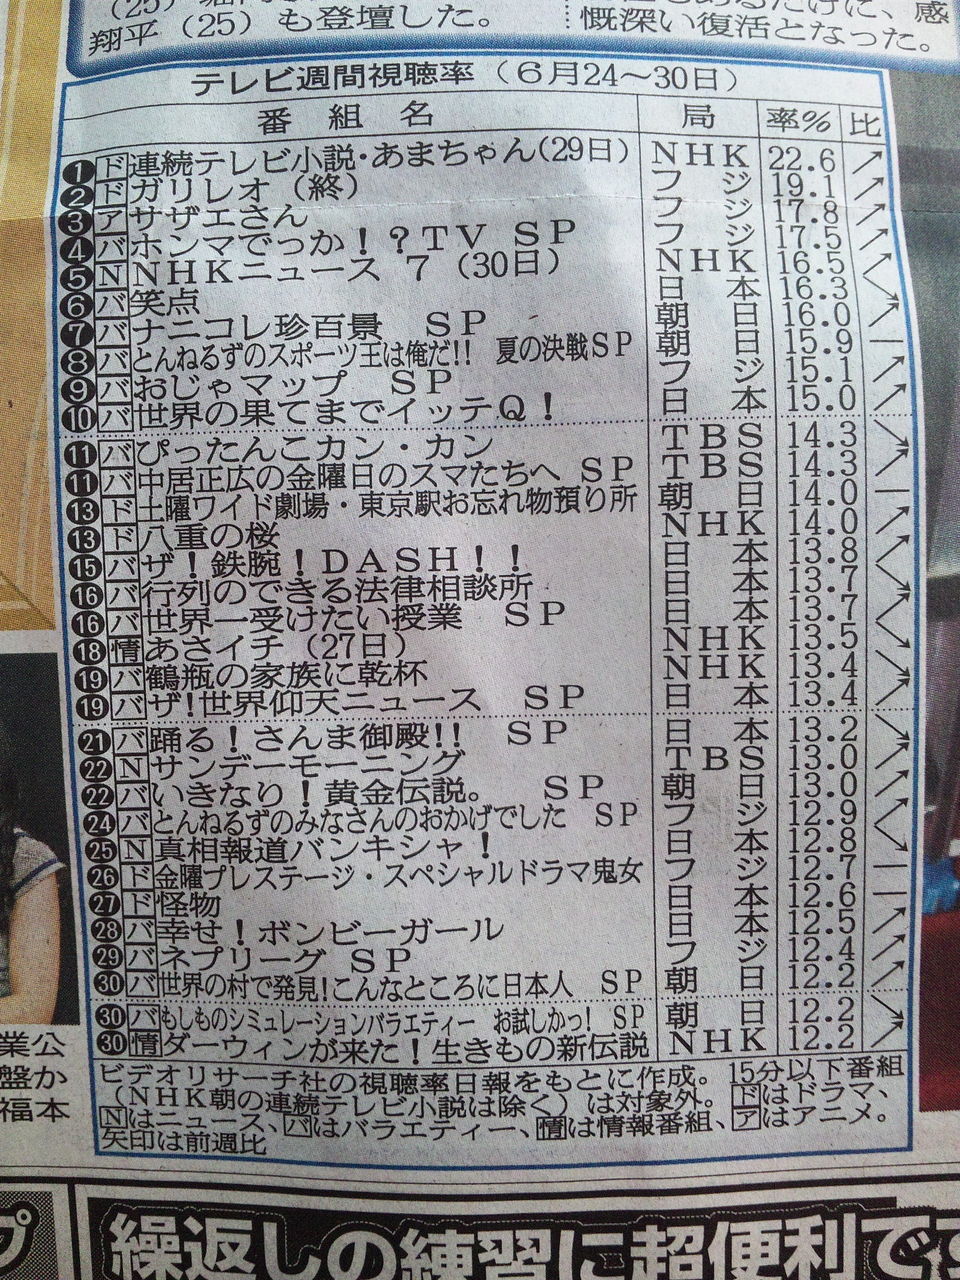 翔平（25）も登壇した。
慨深い復活となった。
テレビ週間視聴率（6月24〜30日）
番組名 局 率% 比
❶ ド 連続テレビ小説・あまちゃん(29日) NHK 22.6 ↗
❷ ド ガリレオ（終） フジ 19.1 ↗
❸ ア サザエさん フジ 17.8 ↗
❹ バ ホンマでっか！？TV SP フジ 17.5 ↗
❺ N NHKニュース 7（30日） NHK 16.5
❻ バ 笑点 日本 16.3
❼ バ ナニコレ珍百景 SP 朝日 16.0
❽ バ とんねるずのスポーツ王は俺だ!! 夏の決戦SP 朝日 15.9 —
❾ バ おじゃマップ SP フジ 15.1 ↗
❿ バ 世界の果てまでイッテQ！ 日本 15.0 ↗
⓫ バ ぴったんこカン・カン TBS 14.3
⓫ バ 中居正広の金曜日のスマたちへ SP TBS 14.3
⓭ ド 土曜ワイド劇場・東京駅お忘れ物預り所 朝日 14.0 —
⓭ ド 八重の桜 NHK 14.0
⓯ バ ザ！鉄腕！DASH！！ 日本 13.8
⓰ バ 行列のできる法律相談所 日本 13.7
⓰ バ 世界一受けたい授業 SP 日本 13.7
⓲ 情 あさイチ（27日） NHK 13.5
⓳ バ 鶴瓶の家族に乾杯 NHK 13.4
⓳ バ ザ!世界仰天ニュース SP 日本 13.4
㉑ バ 踊る！さんま御殿!! SP 日本 13.2
㉒ N サンデーモーニング TBS 13.0
㉒ バ いきなり！黄金伝説。 SP 朝日 13.0
㉔ バ とんねるずのみなさんのおかげでした SP フジ 12.9
㉕ N 真相報道バンキシャ！ 日本 12.8
㉖ ド 金曜プレステージ・スペシャルドラマ鬼女 フジ 12.7 —
㉗ ド 怪物 日本 12.6 —
㉘ バ 幸せ！ボンビーガール 日本 12.5 ↗
㉙ バ ネプリーグ SP フジ 12.4 ↗
㉚ バ 世界の村で発見!こんなところに日本人 SP 朝日 12.2 ↗
㉚ バ もしものシミュレーションバラエティー お試しかっ! SP 朝日 12.2 ↘
㉚ 情 ダーウィンが来た！生きもの新伝説 NHK 12.2 ↗
ビデオリサーチ社の視聴率日報をもとに作成。15分以下番組
（NHK朝の連続テレビ小説は除く）は対象外。ドはドラマ、
Nはニュース、バはバラエティー、情は情報番組、アはアニメ。
矢印は前週比
業公
盤か
福本
繰返しの練習に超便利で